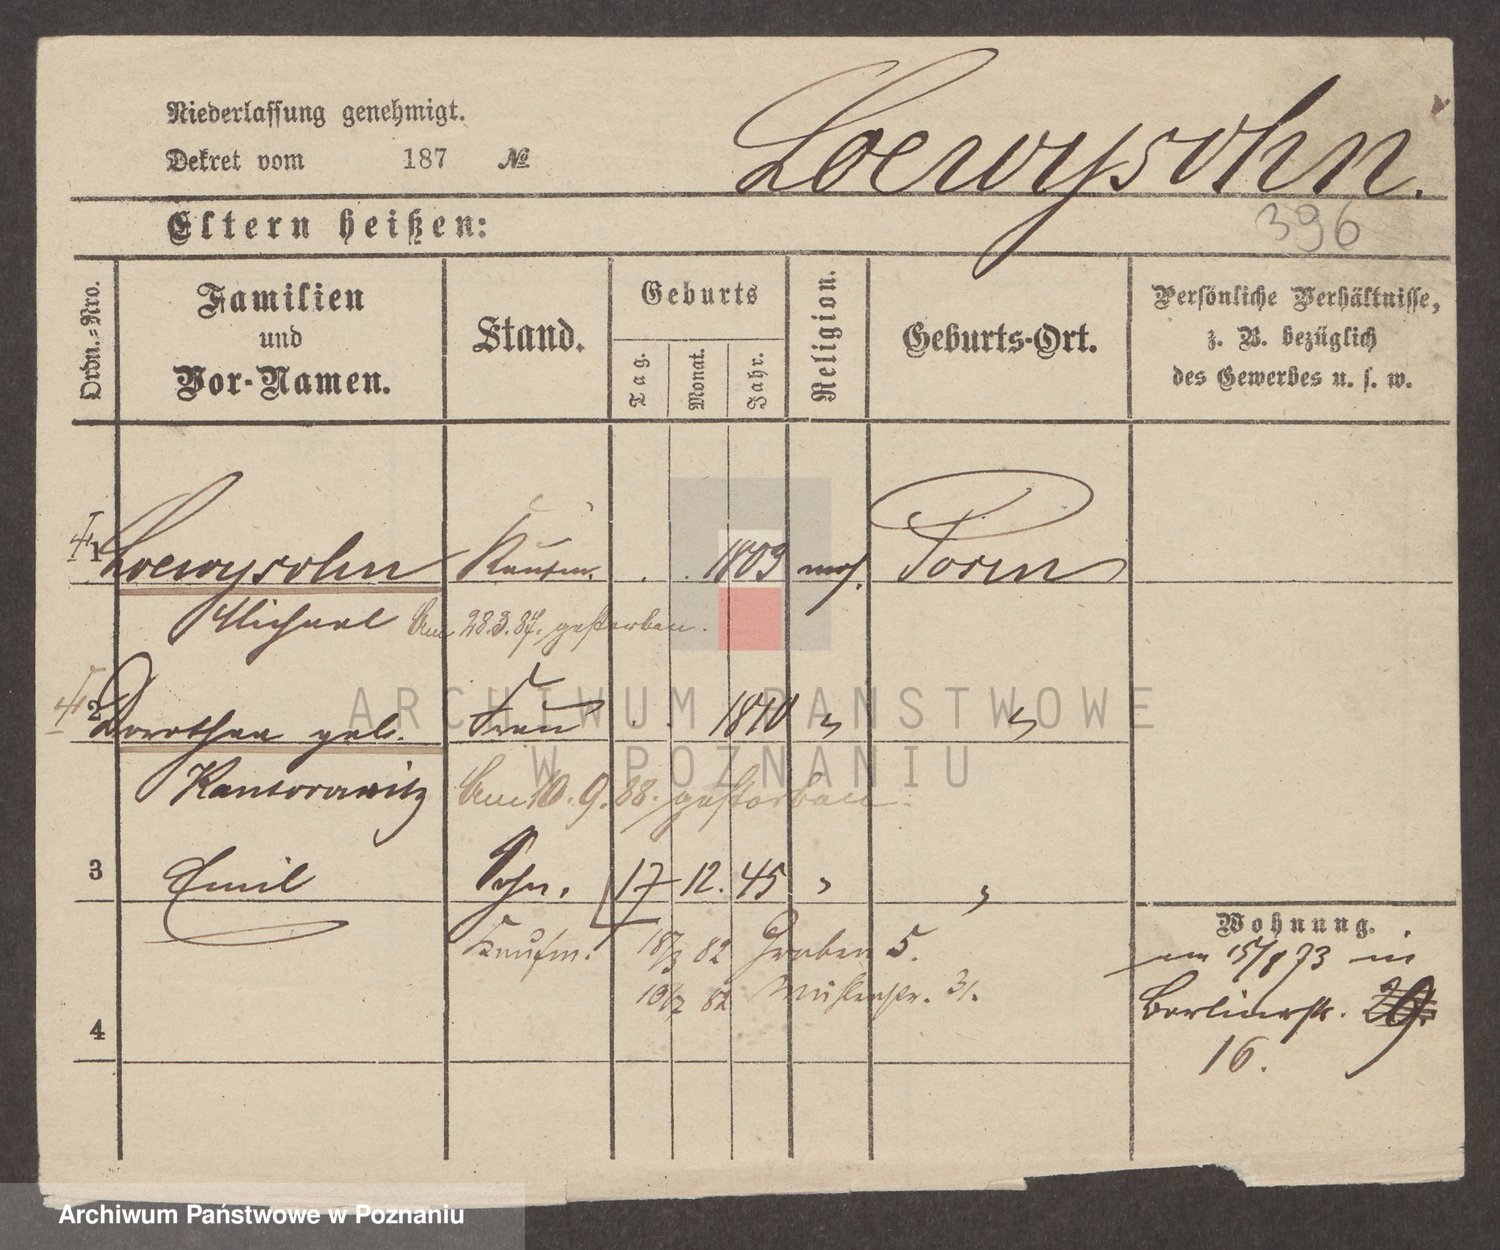 Niederlassung genehmigt.
Dekret vom 187 №
Loewysohn.
396
Eltern heißen:
Ordn.-Nro.
Familien
und
Vor-Namen.
Stand.
Geburts
Tag.
Monat.
Jahr.
Religion.
Geburts-Ort.
Persönliche Verhältnisse,
z. B. bezüglich
des Gewerbes u. s. w.
1 Loewysohn Kaufm. . . 1809 mos. Posen
Michael Am 28.3.87. gestorben.
2 Dorothea geb. Frau . . 1810 " "
Kantorowitz Am 10.9.88. gestorben.
3 Emil Sohn. 17 12. 45 " "
Kaufm. 18/3 82 Graben 5.
10/7 82 Mühlenstr. 31.
4
Wohnung.
am 15/8 73 in
Berlinerstr. 29.
16.
ARCHIWUM PAŃSTWOWE
W POZNANIU
Archiwum Państwowe w Poznaniu